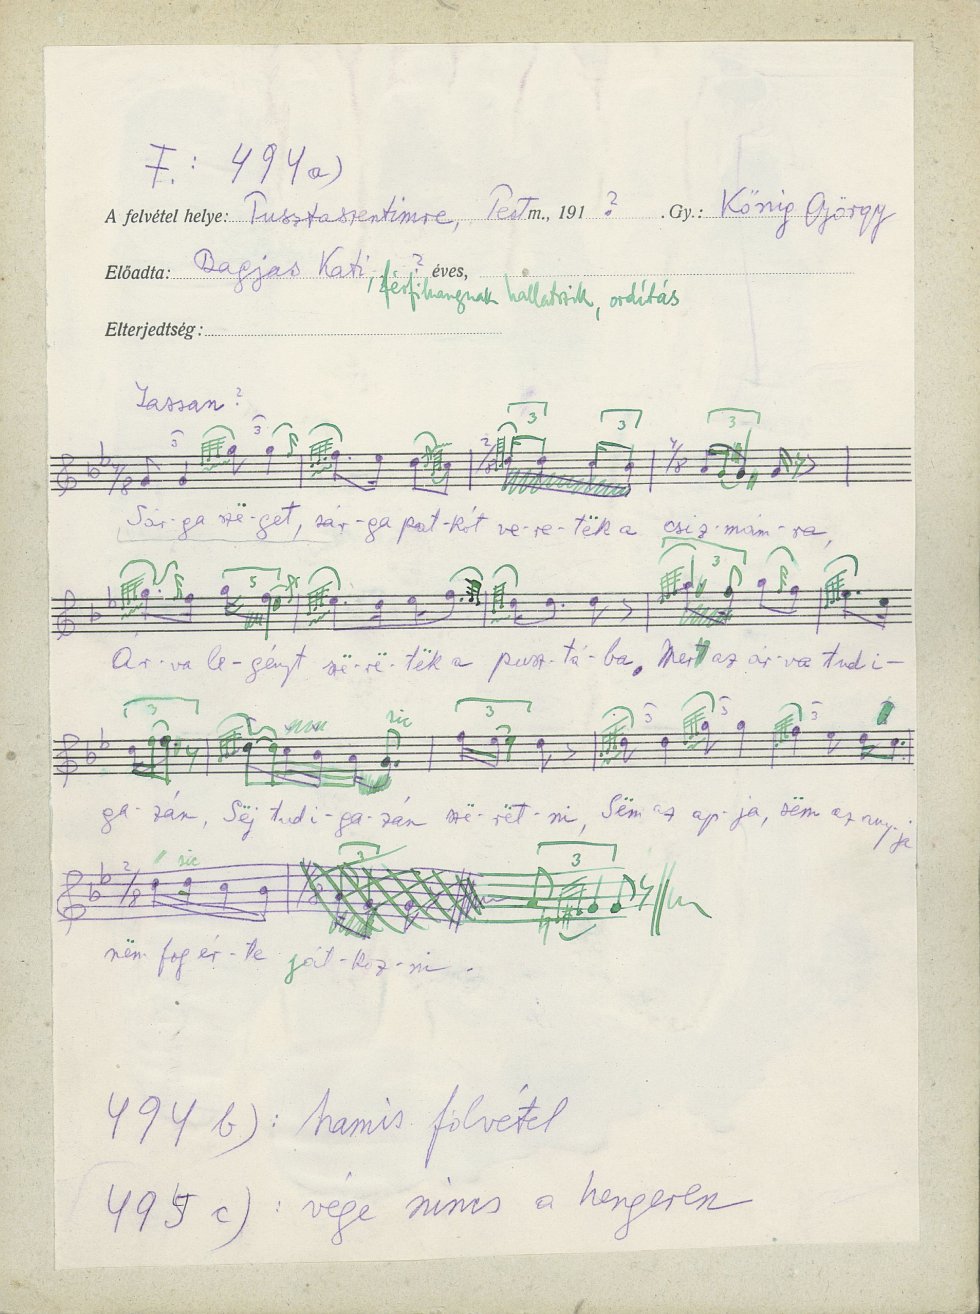 F.: 494a)
A felvétel helye: Pusztaszentimre, Pest m., 191 ? . Gy.: Kőnig György
Előadta: Bagjas Kati, ? éves,
férfihangnak hallatszik, ordítás
Elterjedtség:
Lassan?
3 3 3 3 3
7/8 2/8 4/8
Sár-ga szë-get, sár-ga pat-kót ve-re-tëk a csiz-mám-ra,
5 3
Ár-va le-génytszë-rë-tëk a pusz-tá-ba, Mert az ár-va tud i-
3 sic 3 3 3 3
ga-zán, Sëj tud i-ga-zán szë-rët-ni, Sëm az ap-ja, sëm az any-ja
2/8 sic 3 3
nëm fog ér-te gát-koz-ni.
494 b): hamis fölvétel
495 c): vége nincs a hengeren